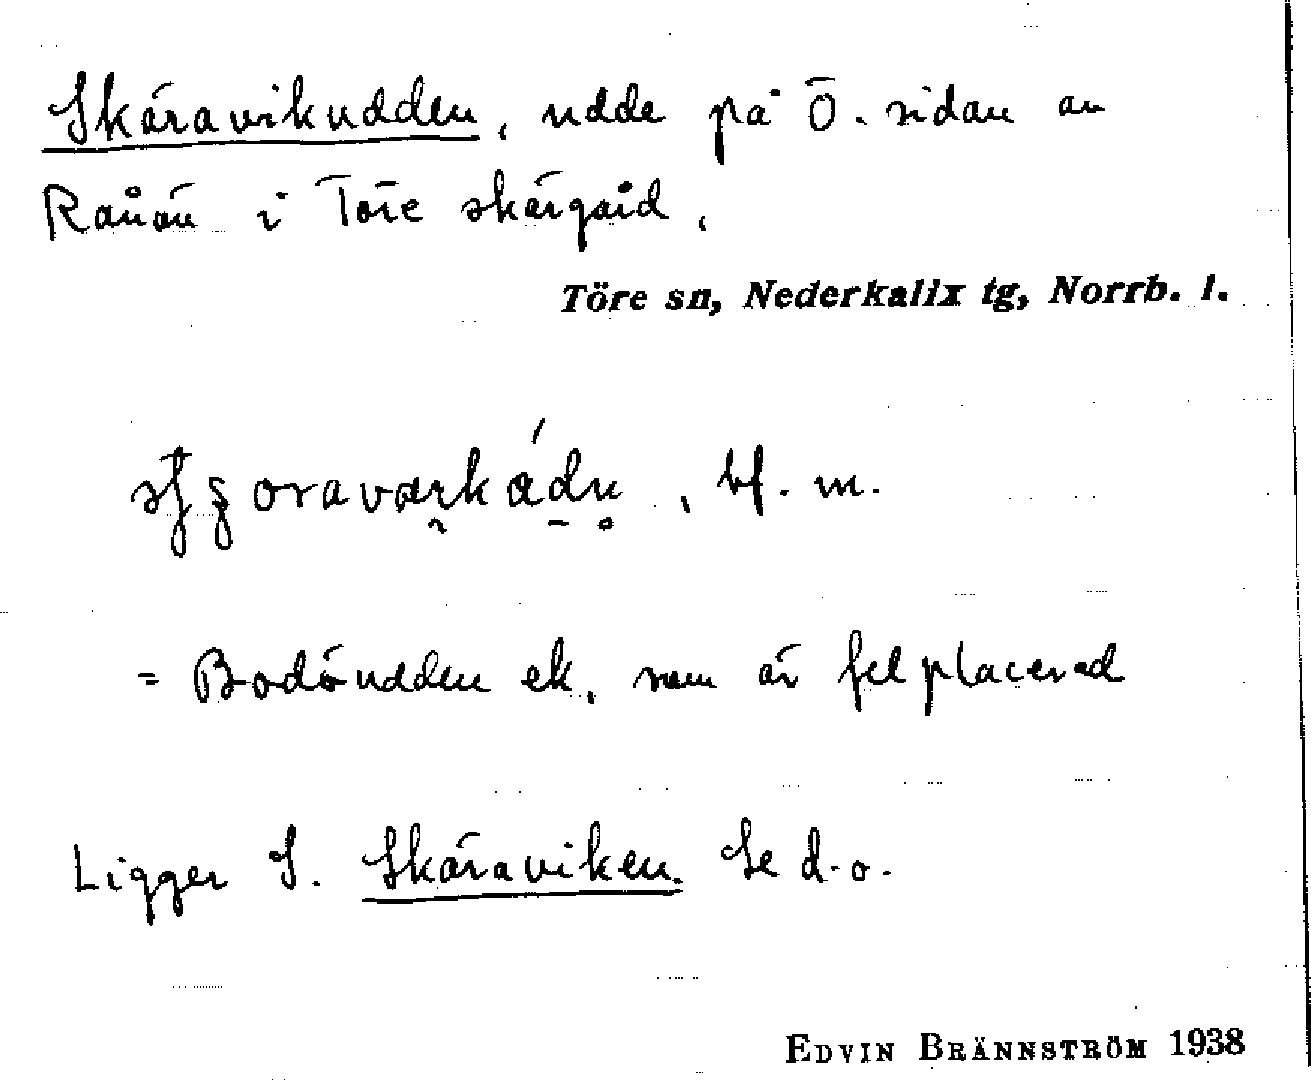 Skäravikudden, udde på Ö. sidan av
Rånön i Töre skärgård,
Töre sn, Nederkalix tg, Norrb. l.
, bf. m.
= Bodöudden ek. som är felplacerad
Ligger S. Skäraviken. Se d.o.
EDVIN BRÄNNSTRÖM 1938